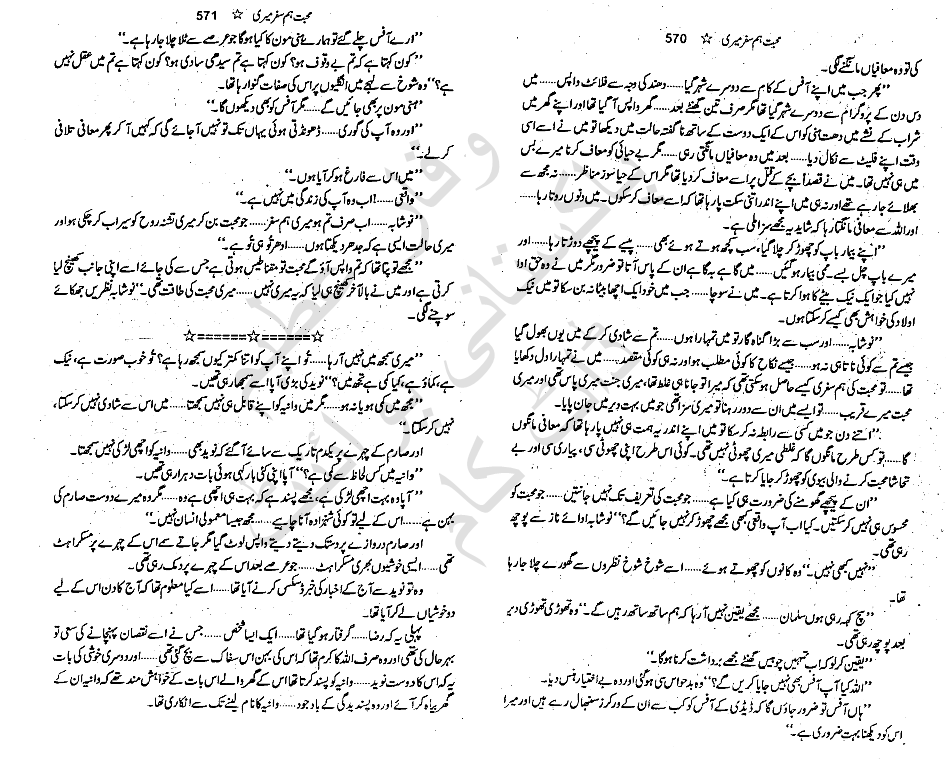 محبت ہم سفر میری ☆ 570
کی تو وہ معافیاں مانگنے لگی۔
’’پھر جب میں اپنے آفس کے کام سے دوسرے شہر گیا...... دھند کی وجہ سے فلائٹ واپس...... میں
دس دن کے پروگرام سے دوسرے شہر گیا تھا مگر صرف تین گھنٹے بعد...... گھر واپس آ گیا تھا اور اپنے گھر میں
شراب کے نشے میں دھت بنی کو اس کے ایک دوست کے ساتھ ناگفتہ حالت میں دیکھا تو میں نے اسے اسی
وقت اپنے فلیٹ سے نکال دیا...... بعد میں وہ معافیاں مانگتی رہی...... مگر بے حیائی کو معاف کرنا میرے بس
میں ہی نہیں تھا۔ میں نے قصداً بچے کے قتل پر اسے معاف کر دیا تھا مگر اس کے حیا سوز مناظر...... نہ مجھ سے
بھلائے جا رہے تھے اور نہ ہی میں اپنے اندر اتنی سکت پا رہا تھا کہ اسے معاف کر سکوں۔ میں دنوں روتا رہا......
اور اللہ سے معافی مانگتا رہا کہ شاید یہ مجھے سزا ملی ہے۔
’’اپنے بیمار باپ کو چھوڑ کر چلا گیا، سب کچھ ہوتے ہوئے بھی...... پیسے کے پیچھے دوڑتا رہا...... اور
میرے باپ چل بسے۔ ممی بیمار ہو گئیں...... میں گاہے بہ گاہے ان کے پاس آتا تو ضرور مگر میں نے وہ حق ادا
نہیں کیا جو ایک نیک بیٹے کا ہوا کرتا ہے۔ میں نے سوچا...... جب میں خود ایک اچھا بیٹا نہ بن سکا تو میں نیک
اولاد کی خواہش بھی کیسے کر سکتا ہوں۔
’’نوشابہ...... اور سب سے بڑا گناہ گار تو میں تمہارا ہوں...... تم سے شادی کر کے میں یوں بھول گیا
جیسے تم سے کوئی ناتا ہی نہ ہو...... جیسے نکاح کا کوئی مطلب ہو اور نہ ہی کوئی مقصد...... میں نے تمہارا دل دکھایا
تھا...... تو محبت کی ہم سفری کیسے حاصل ہو سکتی تھی کہ میرا تو جانا ہی غلط تھا، میری جنت میری پاس تھی اور میری
محبت میرے قریب...... تو ایسے میں ان سے دور رہنا تو میری سزا تھی جو میں بہت دیر میں جان پایا۔
’’اتنے دن جو میں کسی سے رابطہ نہ کر سکا تو میں اپنے اندر یہ ہمت ہی نہیں پا رہا تھا کہ معافی مانگوں
گا...... تو کس طرح مانگوں گا کہ غلطی میری چھوٹی نہیں تھی۔ کوئی اس طرح اپنی چھوٹی سی، پیاری سی اور بے
تحاشا محبت کرنے والی بیوی کو چھوڑ کر جایا کرتا ہے۔‘‘
’’ان کے پیچھے گھومنے کی ضرورت ہی کیا ہے...... جو محبت کی تعریف تک نہیں جانتیں...... جو محبت کو
محسوس ہی نہیں کر سکتیں۔ کیا اب آپ واقعی کبھی مجھے چھوڑ کر نہیں جائیں گے؟‘‘ نوشابہ ادائے ناز سے پوچھ
رہی تھی۔
’’نہیں کبھی نہیں۔‘‘ وہ کانوں کو چھوتے ہوئے...... اسے شوخ شوخ نظروں سے گھورے چلا جا رہا
تھا۔
’’سچ کہہ رہی ہوں سلمان...... مجھے یقین نہیں آ رہا کہ ہم ساتھ ساتھ رہیں گے۔‘‘ وہ تھوڑی تھوڑی دیر
بعد پوچھ رہی تھی۔
’’یقین کر لو کہ اب تمہیں چوبیس گھنٹے مجھے برداشت کرنا ہو گا۔‘‘
’’اللہ کیا آپ آفس بھی نہیں جایا کریں گے؟‘‘ وہ بدحواس سی ہو گئی اور وہ بے اختیار ہنس دیا۔
’’ہاں آفس تو ضرور جاؤں گا کہ ڈیڈی کے آفس کو کب سے ان کے ورکرز سنبھال رہے ہیں اور میرا
اس کو دیکھنا بہت ضروری ہے۔‘‘
محبت ہم سفر میری ☆ 571
’’ارے آفس چلے گئے تو ہمارے ہنی مون کا کیا ہو گا جو عرصے سے ٹلا چلا جا رہا ہے۔‘‘
’’کون کہتا ہے کہ تم بے وقوف ہو؟ کون کہتا ہے تم سیدھی سادی ہو؟ کون کہتا ہے تم میں عقل نہیں
ہے؟‘‘ وہ شوخ سے لہجے میں انگلیوں پر اس کی صفات گنوا رہا تھا۔
’’ہنی مون پر بھی جائیں گے...... مگر آفس کو بھی دیکھوں گا۔‘‘
’’اور وہ آپ کی گوری...... ڈھونڈتی ہوئی یہاں تک تو نہیں آ جائے گی کہ کہیں آ کر پھر معافی تلافی
کر لے۔‘‘
’’میں اس سے فارغ ہو کر آیا ہوں۔‘‘
’’واقعی......! اب وہ آپ کی زندگی میں نہیں ہے۔‘‘
’’نوشابہ...... اب صرف تم ہو میری ہم سفر...... جو محبت بن کر میری تشنہ روح کو سیراب کر چکی ہو اور
میری حالت ایسی ہے کہ جدھر دیکھتا ہوں...... ادھر تُو ہی تُو ہے۔‘‘
’’مجھے تو پتا تھا کہ تم واپس آؤ گے محبت تو مقناطیس ہوتی ہے جس سے کی جائے اسے اپنی جانب کھینچ لیا
کرتی ہے اور میں نے بالآخر کھینچ ہی لیا کہ یہ میری نہیں...... میری محبت کی طاقت تھی۔‘‘ نوشابہ نظریں جھکائے
سوچنے لگی۔
☆======☆======☆
’’میری سمجھ میں نہیں آ رہا...... تُو اپنے آپ کو اتنا کمتر کیوں سمجھ رہا ہے؟ تُو خوب صورت ہے، نیک
ہے، کماؤ ہے، کیا کمی ہے تجھ میں؟‘‘ نوید کی بڑی آپا اسے سمجھا رہی تھیں۔
’’مجھ میں کمی ہو یا نہ ہو...... مگر میں وانیہ کو اپنے قابل ہی نہیں سمجھتا...... میں اس سے شادی نہیں کر سکتا،
نہیں کر سکتا۔‘‘
اور صارم کے چہرے پر یکدم تاریک سے سائے آ گئے کہ نوید بھی...... وانیہ کو اچھی لڑکی نہیں سمجھتا۔
’’وانیہ میں کس لحاظ سے کمی ہے؟‘‘ آپا اپنی کئی بار کہی ہوئی بات دہرا رہی تھیں۔
’’آپا وہ بہت اچھی لڑکی ہے، مجھے پسند ہے کہ بہت ہی اچھی ہے وہ...... مگر وہ میرے دوست صارم کی
بہن ہے...... اس کے لیے تو کوئی شہزادہ آنا چاہیے...... مجھ جیسا معمولی انسان نہیں۔‘‘
اور صارم دروازے پر دستک دیتے دیتے واپس لوٹ گیا مگر جاتے سے اس کے چہرے پر مسکراہٹ
تھی...... ایسی خوشیوں بھری مسکراہٹ...... جو عرصے بعد اس کے چہرے پر دمک رہی تھی۔
وہ تو نوید سے آج کے اخبار کی خبر ڈسکس کرنے آیا تھا...... اسے کیا معلوم تھا کہ آج کا دن اس کے لیے
دو خوشیاں لے کر آیا تھا۔
پہلی یہ کہ رضا...... گرفتار ہو گیا تھا...... ایک ایسا شخص...... جس نے اسے نقصان پہنچانے کی سعی تو
بہرحال کی تھی اور وہ صرف اللہ کا کرم تھا کہ اس کی بہن اس سفاک سے بچ گئی تھی...... اور دوسری خوشی کی بات
یہ کہ اس کا دوست نوید...... وانیہ کو پسند کرتا تھا اس کے گھر والے اس بات کے خواہش مند تھے کہ وانیہ ان کے
گھر بیاہ کر آئے اور وہ پسندیدگی کے باوجود...... وانیہ کا نام لینے تک سے انکاری تھا۔